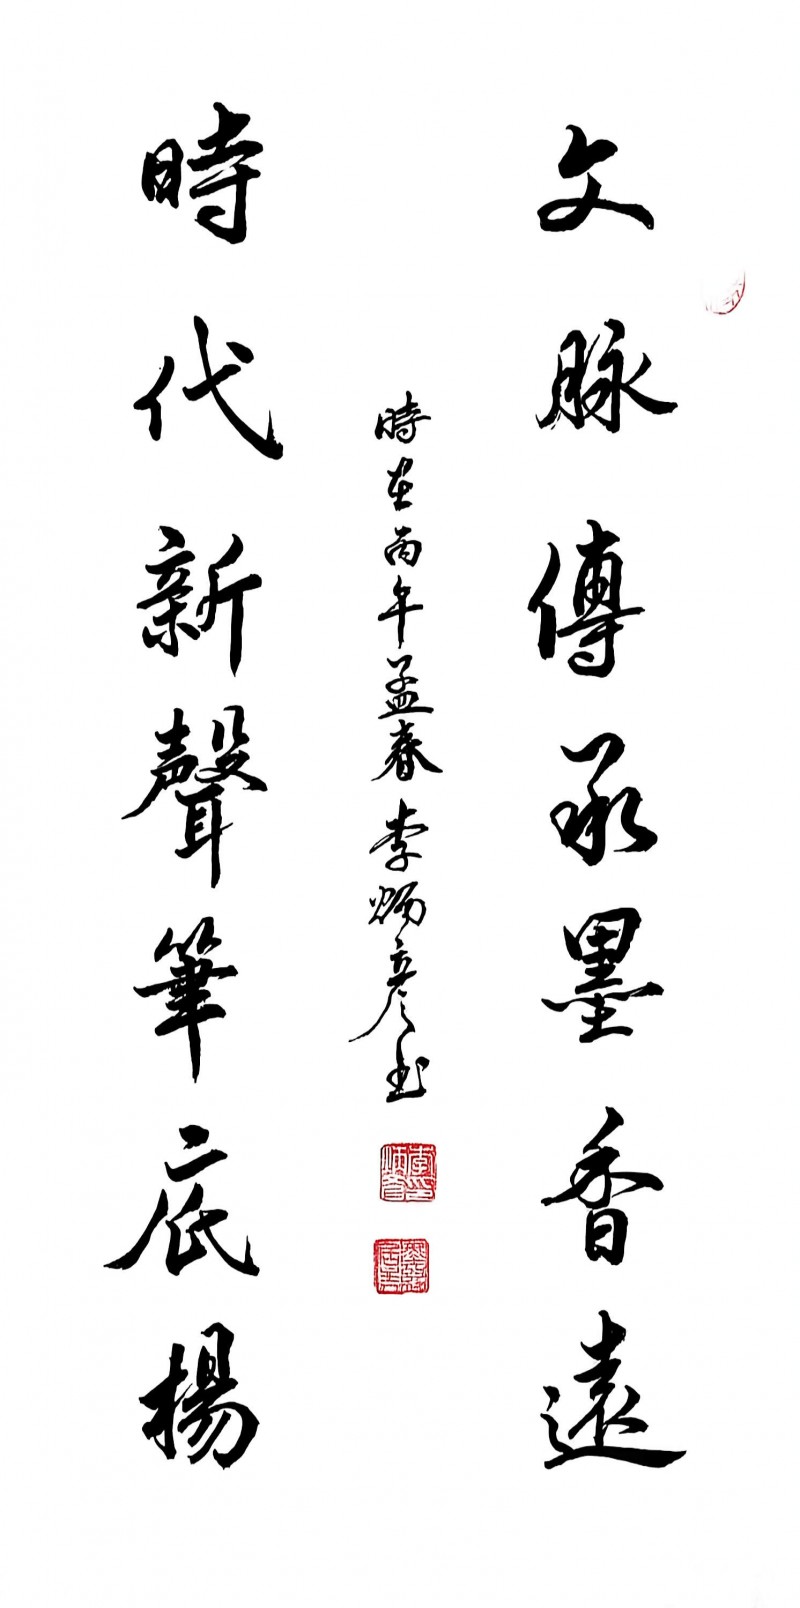 文脉傳承墨香遠
時代新聲筆底揚
時在丙午孟春李炳彦书